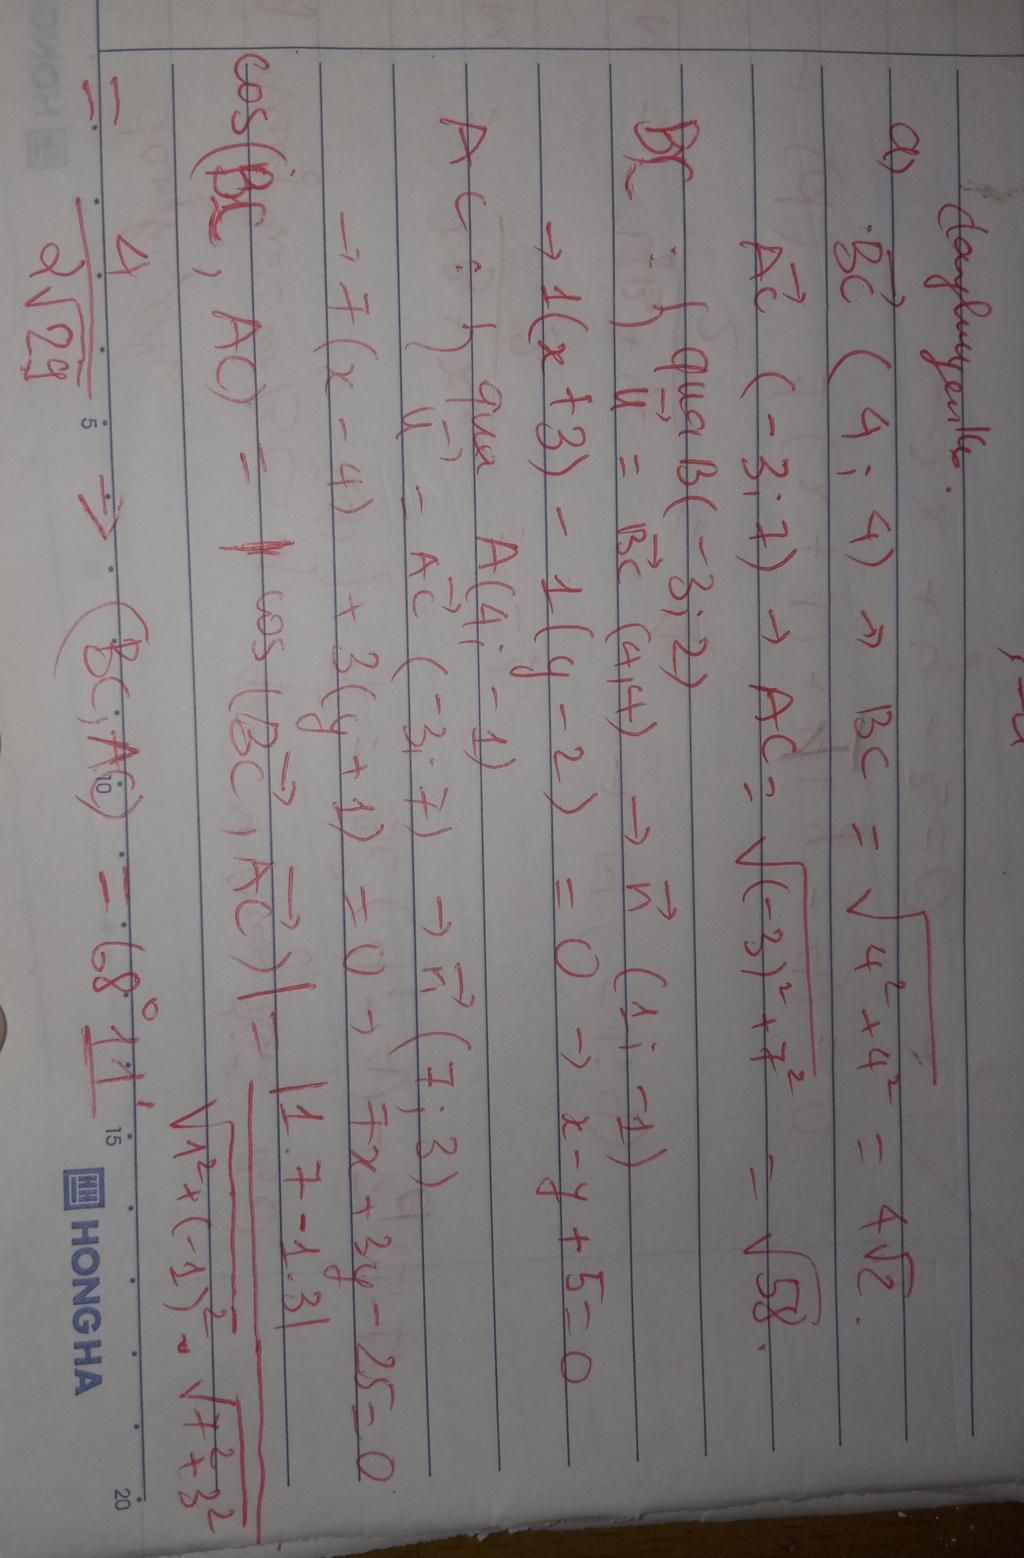 a)
BC→ (4; 4) → BC = √(4² + 4²) = 4√2.
AC→ (-3; 7) → AC = √((-3)² + 7²) = √58.
BC : { qua B(-3; 2)
u→ = BC→ (4,4) → n→ (1; -1)
→ 1(x + 3) - 1(y - 2) = 0 → x - y + 5 = 0
AC : { qua A(4; -1)
u→ = AC→ (-3; 7) → n→ (7; 3)
→ 7(x - 4) + 3(y + 1) = 0 → 7x + 3y - 25 = 0
cos(BC, AC) = |cos(BC→, AC→)| = |1.7 - 1.3| / √(1² + (-1)²) . √(7² + 3²)
= 4 / 2√29 → (BC, AC) = 68° 11'
5 10 15 20
HH HONGHA